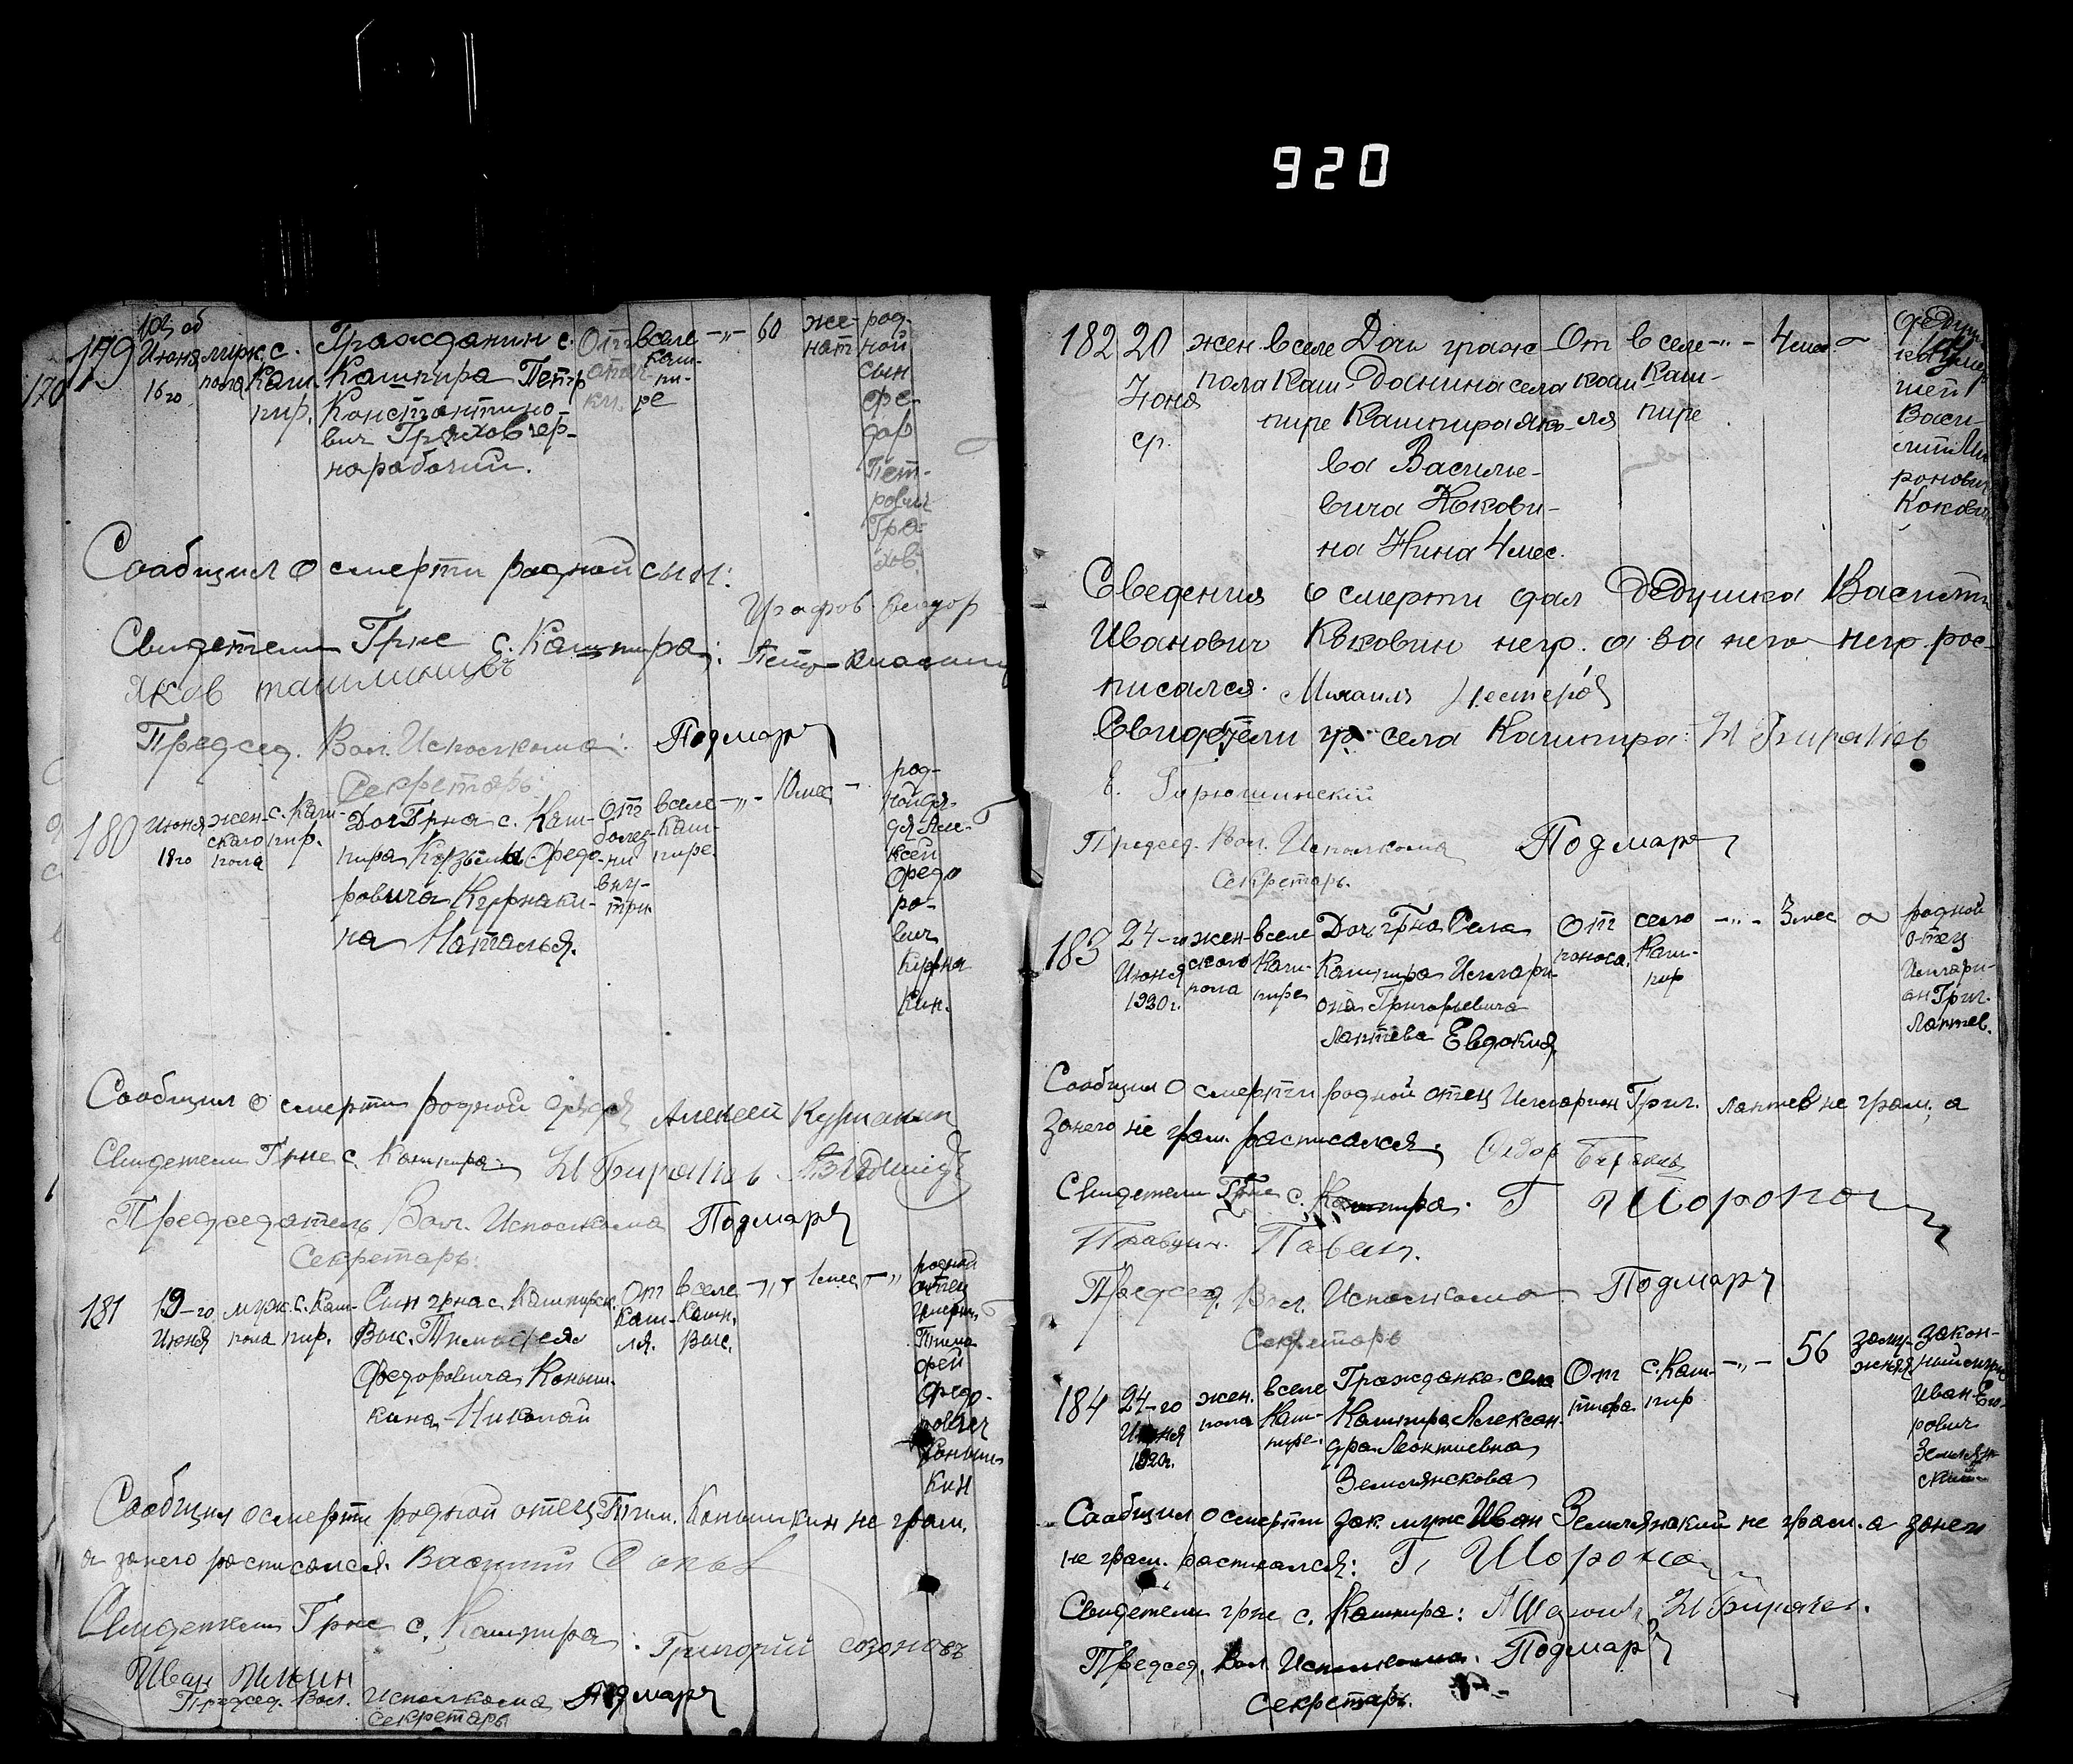 920
179
170
Июня
16го
муж.
пола
с.
Каш-
пир.
Гражданин с.
Кашпира Петр
Константино-
вич Гряхов чер-
норабочий.
От
вселе
Каш-
пи-
ре
60
же-
нат
род-
ной
сын
Фе-
дор
Пет-
рович
Гря-
хов.
Сообщил о смерти родной сын:
Свидетели Грне с. Кашпира:
Яков
Председ. Вол. Исполкома: Подмарь
Секретарь:
180
Июня
18го
жен-
ского
пола
с. Каш-
пир.
Доч Грна с. Каш-
пира Кузьмы Федо-
ровича Курнаки-
на Наталья.
От
болез-
ни
вну-
три
вселе
Каш-
пире.
10 мес
род-
ной дя-
дя Але-
ксей
Федо
ро-
вич
Курна
кин.
Сообщил о смерти родной дядя Алексей Курнакин
Свидетели Грне с. Кашпира:
Председатель Вол. Исполкома Подмарь
Секретарь:
181
19-го
Июня
муж.
пола
с. Каш-
пир.
Сын грна с. Кашпирск.
Выс. Тимофея
Федоровича Коныш-
кина Николай
От
Каш-
ля.
вселе
Кашп.
Выс.
1 мес
родной
отец
Тимо
фей
Федо-
рович
Коныш-
кин
Сообщил о смерти родной отец Тим. Конышкин не грам.
а занего росписался: Василий
Свидетели Грне с. Кашпира: Григорий Созоновъ
Иван Илкин
Председ. Вол. Исполкома Подмарь
Секретарь
182
20
Июня
жен
пола
вселе
Каш-
пире
Доч граж-
данина села
Кашпира Яко-
ва Василье-
вича Кокови-
на Нина 4 мес.
От
каш-
ля
в селе
Каш-
пире
4 мес.
Васи-
лий
Коковин
Сведения о смерти дал Дедушка Василий
Иванович Коковин негр. а за него негр. рос-
писался. Михаил Нестеров
Свидетели гр. села Кашпира:
Е. Гирюшинский
Председ. Вол. Исполкома Подмарь
Секретарь.
183
24-го
Июня
1920г.
жен-
ского
пола
вселе
Каш-
пире
Доч Грна Села
Кашпира Илари-
она Григорьевича
Лаптева Евдокия.
От
поноса.
село
Каш-
пир
3 мес
родной
отец
Илари-
он Григ.
Лаптев.
Сообщил о смерти родной отец Иларион Григ. Лаптев не грам., а
Занего не грам. расписался:
Свидетели Грне с. Кашпира. Г Шорохо
Председ. Вол. Исполкома Подмарь
Секретарь
184
24-го
Июня
1920г.
жен.
пола
вселе
Каш-
пире.
Гражданка села
Кашпира Алексан-
дра Леонтиевна
Землянскова
От
тифа
с. Каш-
пир
56
заму-
жняя
закон-
ный муж
Иван Его-
рович
Землян-
ский
Сообщил о смерти зак. муж Иван Землянский не грам. а занего
не грам. расписался: Г. Шорохо
Свидетели грне с. Кашпира:
Председ. Вол. Исполкома. Подмарь
Секретарь.